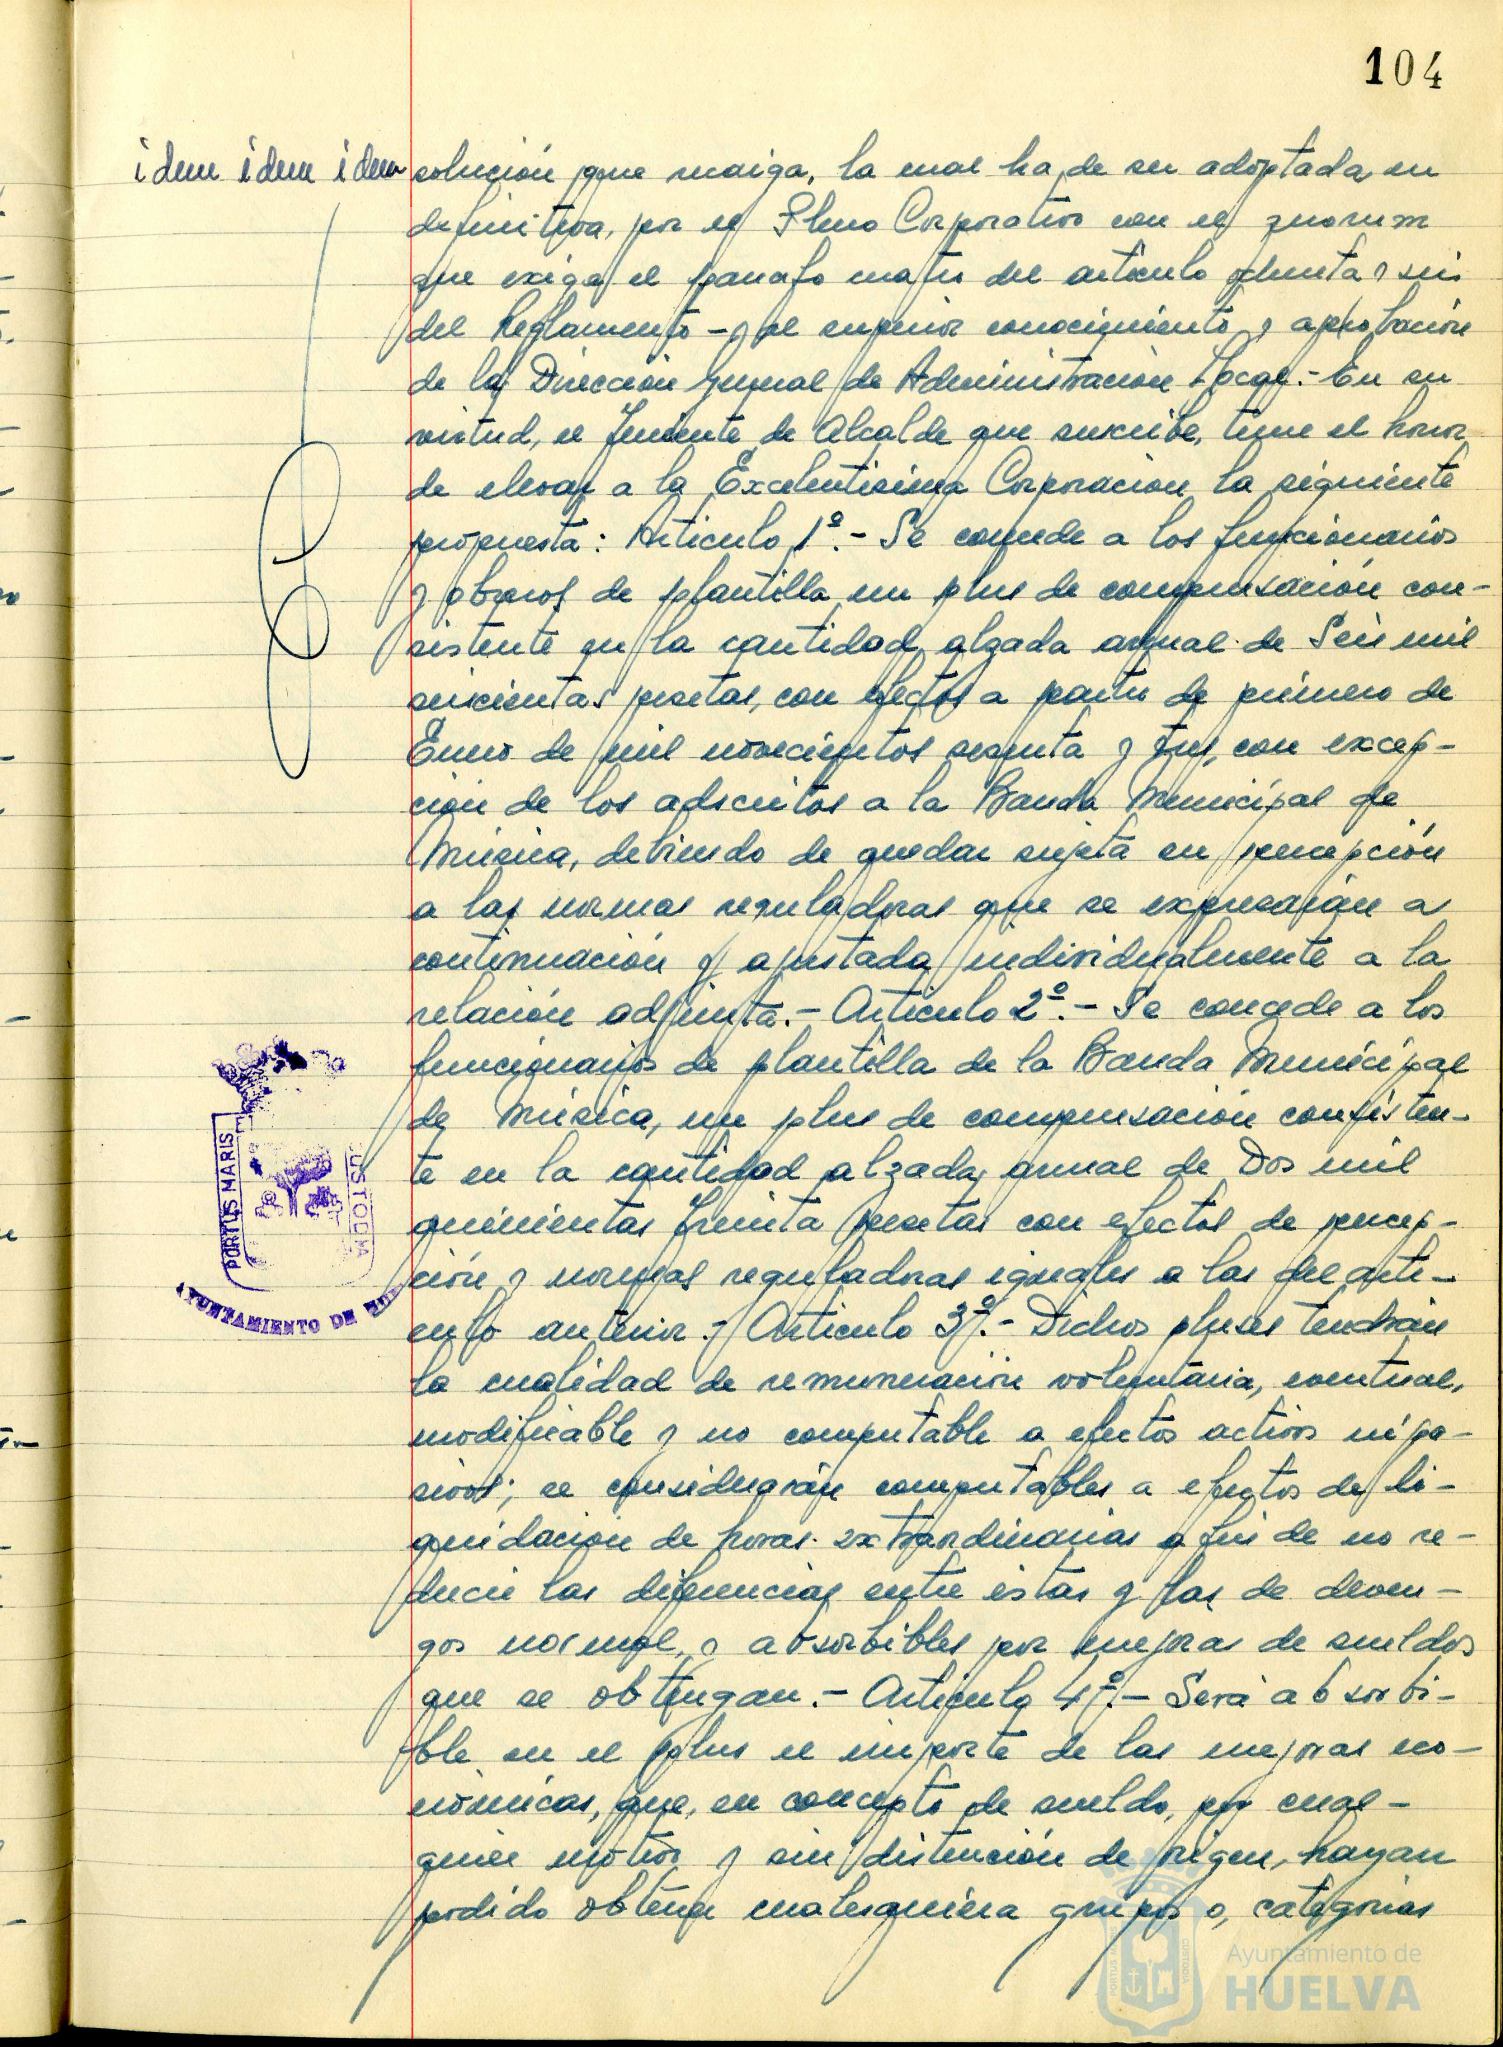 104
idem idem idem
solución que recaiga, la cual ha de ser adoptada en
definitiva, por el Pleno Corporativo con el quorum
que exige el párrafo cuatro del artículo y seis
del Reglamento - y al superior conocimiento y aprobación
de la Dirección general de Administración Local.- En su
virtud, el Teniente de Alcalde que suscribe, tiene el honor
de elevar a la Excelentísima Corporación la siguiente
propuesta: Artículo 1º.- Se concede a los funcionarios
y obreros de plantilla un plus de compensación con-
sistente en la cantidad alzada anual de Seis mil
seiscientas pesetas, con efectos a partir de primero de
Enero de mil novecientos sesenta y tres, con excep-
ción de los adscritos a la Banda Municipal de
Música, debiendo de quedar sujeta su percepción
a las normas reguladoras que se expresarán a
continuación y ajustada individualmente a la
relación adjunta.- Artículo 2º.- Se concede a los
funcionarios de plantilla de la Banda Municipal
de Música, un plus de compensación consisten-
te en la cantidad alzada anual de Dos mil
quinientas treinta pesetas con efectos de percep-
ción y normas reguladoras iguales a las del artí-
culo anterior.- Artículo 3º.- Dichos pluses tendrán
la cualidad de remuneración voluntaria, eventual,
modificable y no computable a efectos activos ni pa-
sivos; se considerarán computables a efectos de li-
quidación de horas extraordinarias a fin de no re-
ducir las diferencias entre éstas y las de deven-
gos normal, y absorbibles por mejoras de sueldos
que se obtengan.- Artículo 4º.- Será absorbi-
ble en el plus el importe de las mejoras eco-
nómicas, que, en concepto de sueldo, por cual-
quier motivo y sin distinción de origen, hayan
podido obtener cualesquiera grupos o, categorías
PORTUS MARIS
CUSTODIA
AYUNTAMIENTO DE HUE
Ayuntamiento de
HUELVA